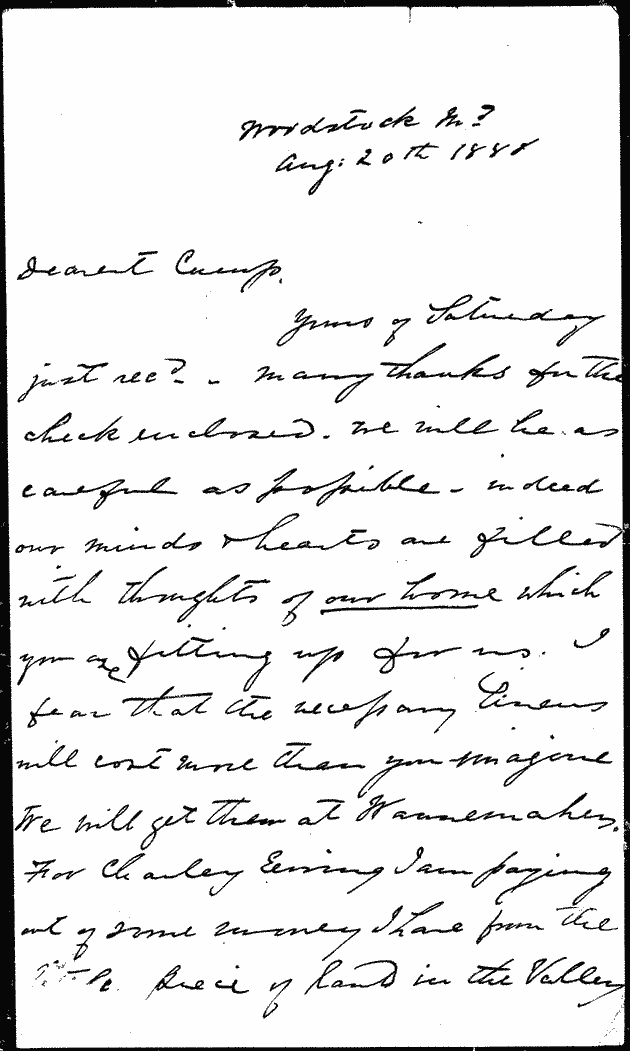 Woodstock Md
Aug: 20th 1888
Dearest Cump.
Yours of Saturday
just recd - - many thanks for the
check enclosed. We will be as
careful as possible - indeed
our minds & hearts are filled
with thoughts of our home which
you are fitting up for us. I
fear that the necessary linens
will cost more than you imagine
We will get them at Wannemakers.
For Charley Ewing I am paying
out of some money I have from the
piece of land in the Valley